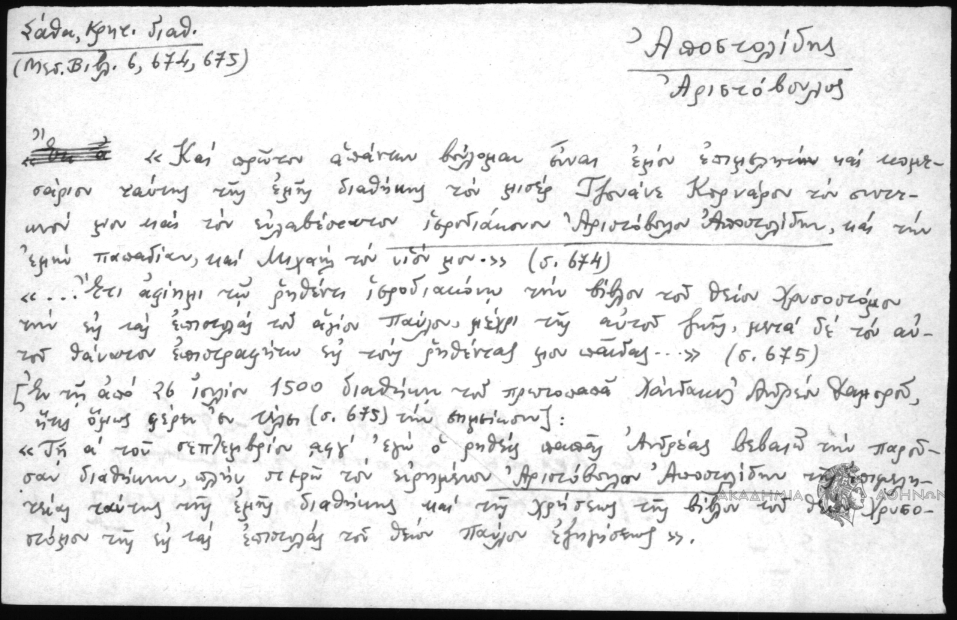 Σάθα, Κρητ. διαθ.
(Μεσ. Βιβλ. 6, 674, 675)
Ἀποστολίδης
Ἀριστόβουλος
« Καί πρῶτον ἁπάντων βούλομαι εἶναι ἐμόν ἐπιμελητήν καί κομε-
σάριον ταύτης τῆς ἐμῆς διαθήκης τόν μισέρ Τζουάνε Κορνάρον τόν συντε-
κνόν μου καί τόν εὐλαβέστατον ἱεροδιάκονον Ἀριστόβουλον Ἀποστολίδην, καί τήν
ἐμήν παπαδίαν, καί Μιχαήλ τόν υἱόν μου.» (σ. 674)
«... Ἔτι ἀφίημι τῷ ῥηθέντι ἱεροδιακόνῳ τήν βίβλον τοῦ θείου Χρυσοστόμου
τήν εἰς τάς ἐπιστολάς τοῦ ἁγίου Παύλου, μέχρι τῆς αὐτοῦ ζωῆς, μετά δέ τόν αὐ-
τοῦ θάνατον ἐπιστραφήτω εἰς τούς ῥηθέντας μου παῖδας...» (σ. 675)
[Ἐν τῇ ἀπό 26 ἰουλίου 1500 διαθήκῃ τοῦ πρωτοπαπᾶ Χάνδακος Ἀνδρέου
ἥτις ὅμως φέρει ἐν τέλει (σ. 675) τήν σημείωσιν]:
«Τῇ α΄ τοῦ σεπτεμβρίου αφγ΄ ἐγώ ὁ ῥηθείς παπᾶς Ἀνδρέας βεβαιῶ τήν παροῦ-
σαν διαθήκην, πλήν στερῶ τόν εἰρημένον Ἀριστόβουλον Ἀποστολίδην τῆς ἐπιμελη-
τείας ταύτης τῆς ἐμῆς διαθήκης καί τῆς χρήσεως τῆς βίβλου τοῦ θείου Χρυσο-
στόμου τῆς εἰς τάς ἐπιστολάς τοῦ θείου Παύλου ἐξηγήσεως».
ΑΚΑΔΗΜΙΑ ΑΘΗΝΩΝ